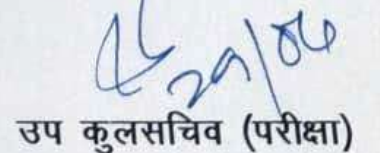 29/06
उप कुलसचिव (परीक्षा)